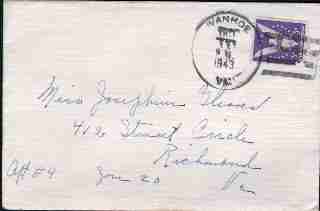 IVANHOE
1943
VA.
Miss Josephine
412 Stuart Circle
Richmond
Apt # 4 Zone 20 Va